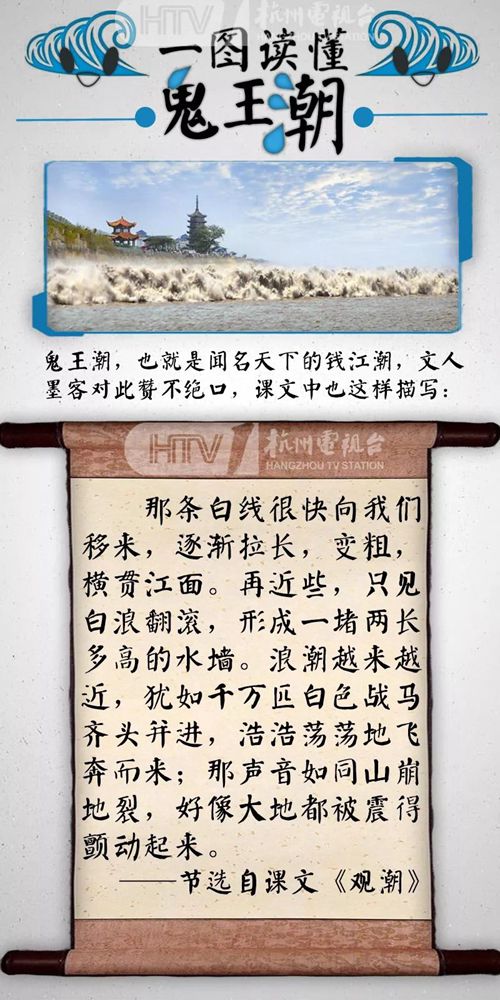 HTV 杭州电视台
HANGZHOU TV STATION
一图读懂
鬼王潮
鬼王潮，也就是闻名天下的钱江潮，文人
墨客对此赞不绝口，课文中也这样描写：
HTV1 杭州电视台
HANGZHOU TV STATION
那条白线很快向我们
移来，逐渐拉长，变粗，
横贯江面。再近些，只见
白浪翻滚，形成一堵两长
多高的水墙。浪潮越来越
近，犹如千万匹白色战马
齐头并进，浩浩荡荡地飞
奔而来；那声音如同山崩
地裂，好像大地都被震得
颤动起来。
——节选自课文《观潮》